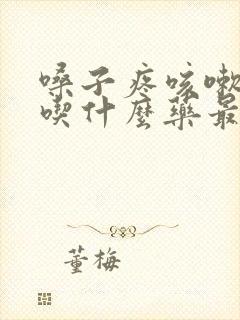 嗓子疼咳嗽
喫什麼藥最
董梅